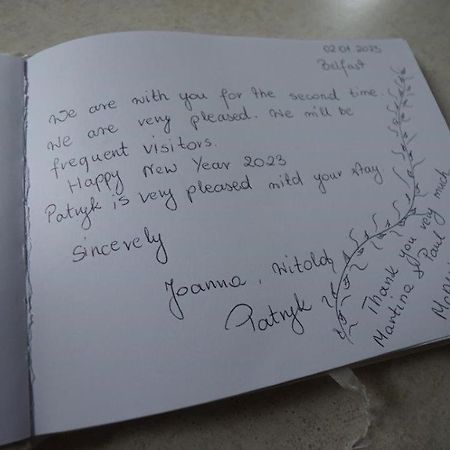 02.01 2023
Belfast
We are with you for the second time.
We are very pleased. We will be
frequent visitors.
Happy New Year 2023
Patryk is very pleased witd your stay.
Sincerely
Joanna, Witold,
Patryk
Thank you very much
Martina & Paul